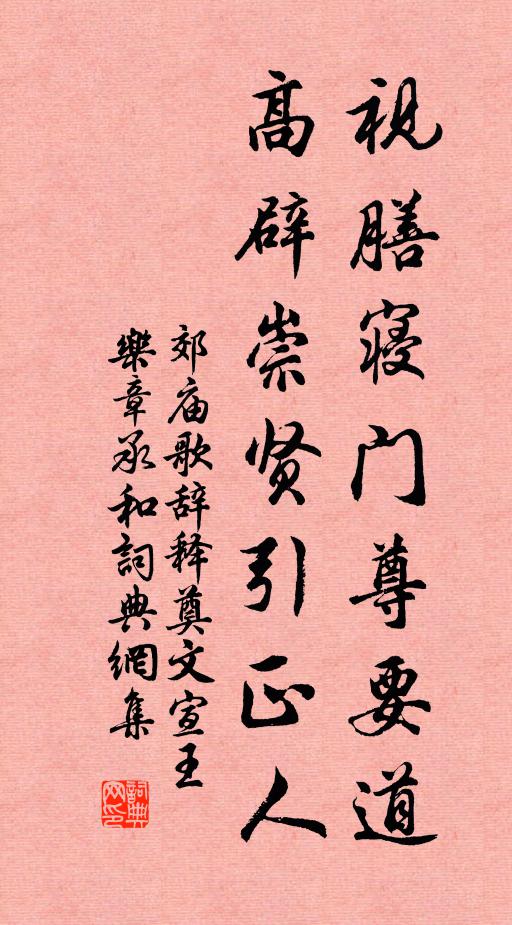 視膳寝门尊要道
高辟崇贤引正人
郊庙歌辞释奠文宣王
樂章承和詞典網集
詞典网印